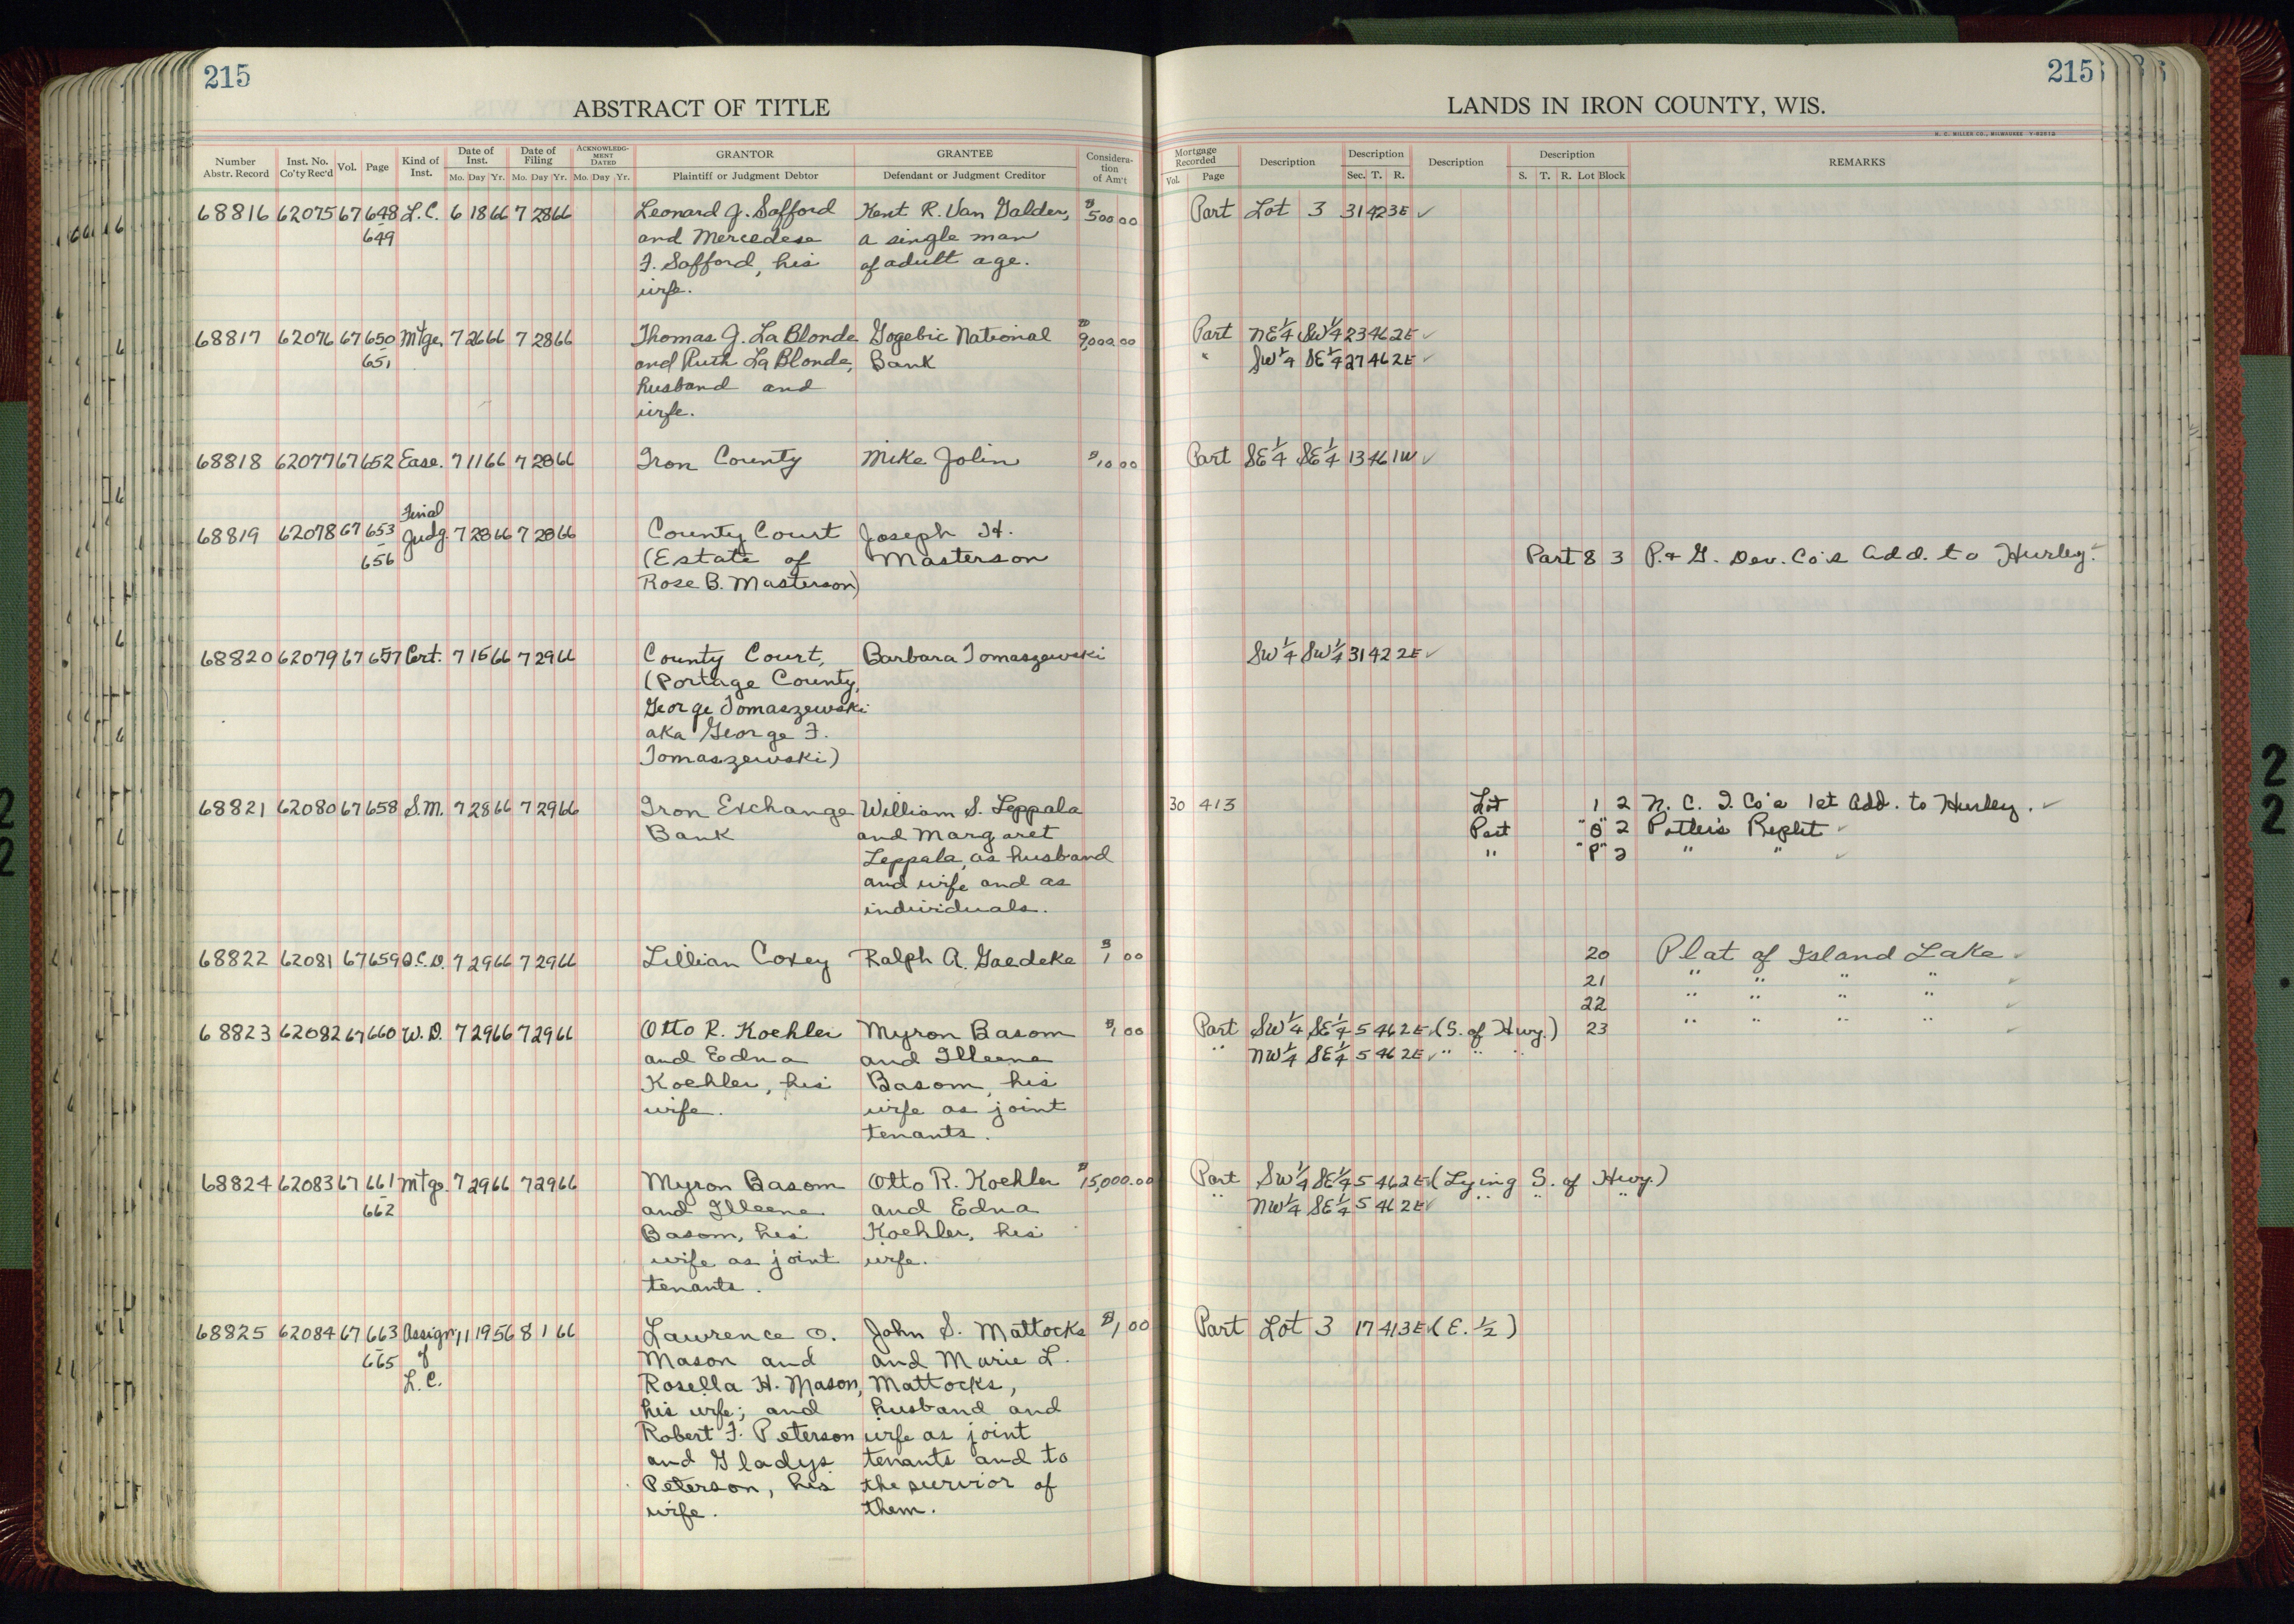 215
ABSTRACT OF TITLE
Number Abstr. Record Inst. No. Co'ty Rec'd Vol. Page Kind of Inst. Date of Inst. Mo. Day Yr. Date of Filing Mo. Day Yr. ACKNOWLEDG-MENT DATED Mo. Day Yr. GRANTOR Plaintiff or Judgment Debtor GRANTEE Defendant or Judgment Creditor Considera-tion of Am't
68816 62075 67 648 L.C. 6 18 66 7 28 66 Leonard J. Safford Kent R. Van Galder, $500 00
649 and Mercedese a single man
F. Safford, his of adult age.
wife.
68817 62076 67 650 Mtge. 7 26 66 7 28 66 Thomas J. La Blonde Gogebic National $9,000 00
651 and Ruth La Blonde, Bank
husband and
wife.
68818 62077 67 652 Ease. 7 11 66 7 28 66 Iron County Mike Jolin $10 00
Final
68819 62078 67 653 Judg. 7 28 66 7 28 66 County Court Joseph H.
656 (Estate of Masterson
Rose B. Masterson)
68820 62079 67 657 Cert. 7 15 66 7 29 66 County Court, Barbara Tomaszewski
(Portage County,
George Tomaszewski
aka George F.
Tomaszewski)
68821 62080 67 658 S.M. 7 28 66 7 29 66 Iron Exchange William S. Leppala
Bank and Margaret
Leppala, as husband
and wife and as
individuals.
68822 62081 67 659 Q.C.D. 7 29 66 7 29 66 Lillian Coxey Ralph A. Gaedeke $1 00
68823 62082 67 660 W.D. 7 29 66 7 29 66 Otto R. Koehler Myron Basom $1 00
and Edna and Illeene
Koehler, his Basom, his
wife. wife as joint
tenants.
68824 62083 67 661 Mtge. 7 29 66 7 29 66 Myron Basom Otto R. Koehler $15,000.00
662 and Illeene and Edna
Basom, his Koehler, his
wife as joint wife.
tenants.
68825 62084 67 663 Assign 11 19 56 8 1 66 Lawrence O. John S. Mattocks $1 00
665 of Mason and and Marie L.
L.C. Rosella H. Mason, Mattocks,
his wife; and husband and
Robert F. Peterson wife as joint
and Gladys tenants and to
Peterson, his the survior of
wife. them.
215
LANDS IN IRON COUNTY, WIS.
H. C. MILLER CO., MILWAUKEE
Mortgage Recorded Vol. Page Description Description Sec. T. R. Description Description S. T. R. Lot Block REMARKS
Part Lot 3 31 42 3E ✓
Part NE 1/4 SW 1/4 23 46 2E ✓
" SW 1/4 SE 1/4 27 46 2E ✓
Part SE 1/4 SE 1/4 13 46 1W ✓
Part 8 3 P. & G. Dev. Co's Add. to Hurley. ✓
SW 1/4 SW 1/4 31 42 2E ✓
30 413 Lot 1 2 N. C. I. Co's 1st Add. to Hurley. ✓
Part "O" 2 Potter's Replt ✓
" "P" 2 " " ✓
20 Plat of Island Lake ✓
21 " " " " ✓
22 " " " " ✓
Part SW 1/4 SE 1/4 5 46 2E ✓ (S. of Hwy.) 23 " " " " ✓
" NW 1/4 SE 1/4 5 46 2E ✓ " " "
Part SW 1/4 SE 1/4 5 46 2E ✓ (Lying S. of Hwy.)
" NW 1/4 SE 1/4 5 46 2E ✓ " " "
Part Lot 3 17 41 3E ✓ (E. 1/2)